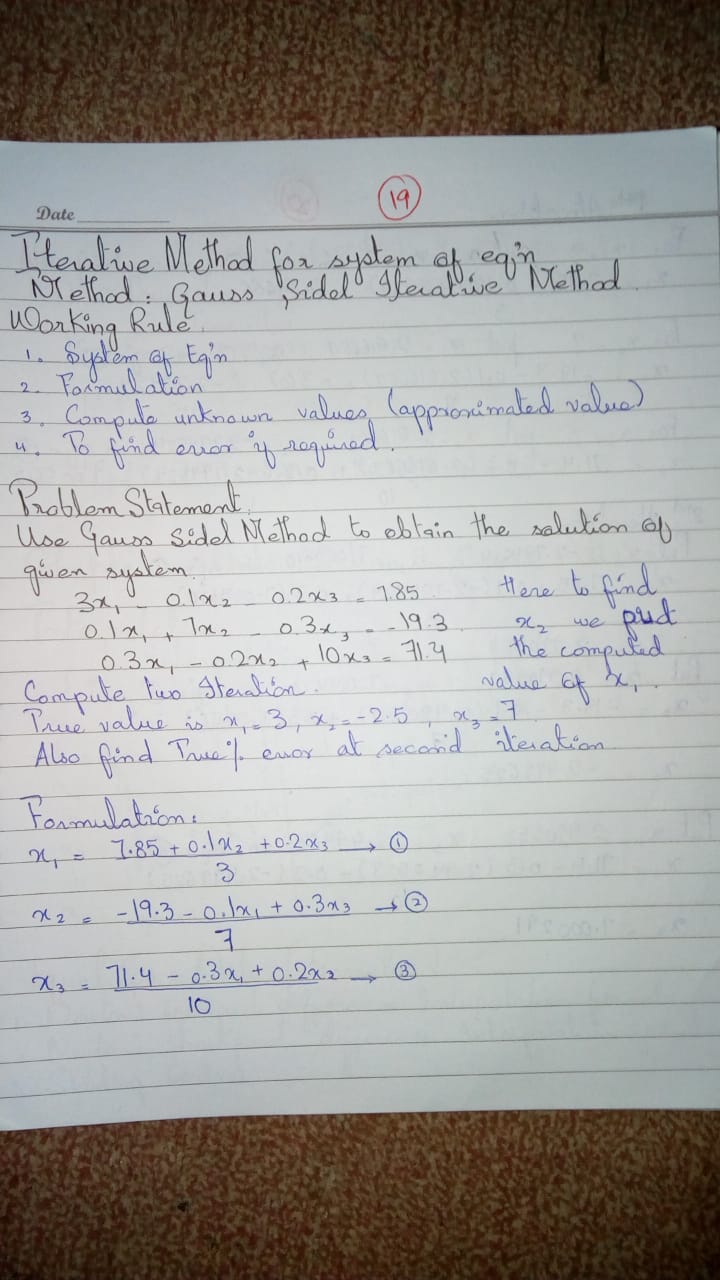 19
Date
Iterative Method for system of eq'n
Method: Gauss Sidel Iterative Method.
Working Rule.
1. System of Eq'n
2. Formulation
3. Compute unknown values (approximated value)
4. To find error if required.
Problem Statement.
Use Gauss Sidel Method to obtain the solution of
given system.
3x₁ - 0.1x₂ - 0.2x₃ = 7.85 Here to find
0.1x₁ + 7x₂ - 0.3x₃ = -19.3 x₂ we put
0.3x₁ - 0.2x₂ + 10x₃ = 71.4 the computed
Compute two Iteration. value of x₁.
True value is x₁ = 3, x₂ = -2.5, x₃ = 7
Also find True % error at second iteration
Formulation:
x₁ = 7.85 + 0.1x₂ + 0.2x₃ → ①
3
x₂ = -19.3 - 0.1x₁ + 0.3x₃ → ②
7
x₃ = 71.4 - 0.3x₁ + 0.2x₂ → ③
10